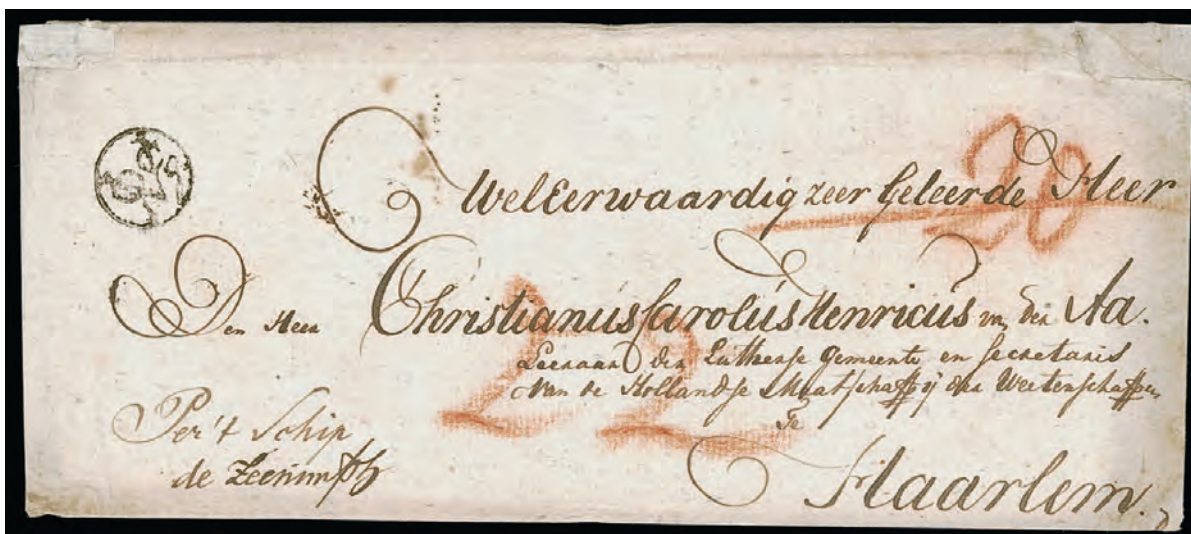 20
WelEerwaardig zeer Geleerde Heer
Den Heer Christianus Carolus Henricus van der Aa.
Leeraar der Luthersse Gemeente en Secretaris
Van de Hollandse Maatschappij der Weetenschappen
Te
22
Haarlem.
Per 't Schip
de Zeenimph